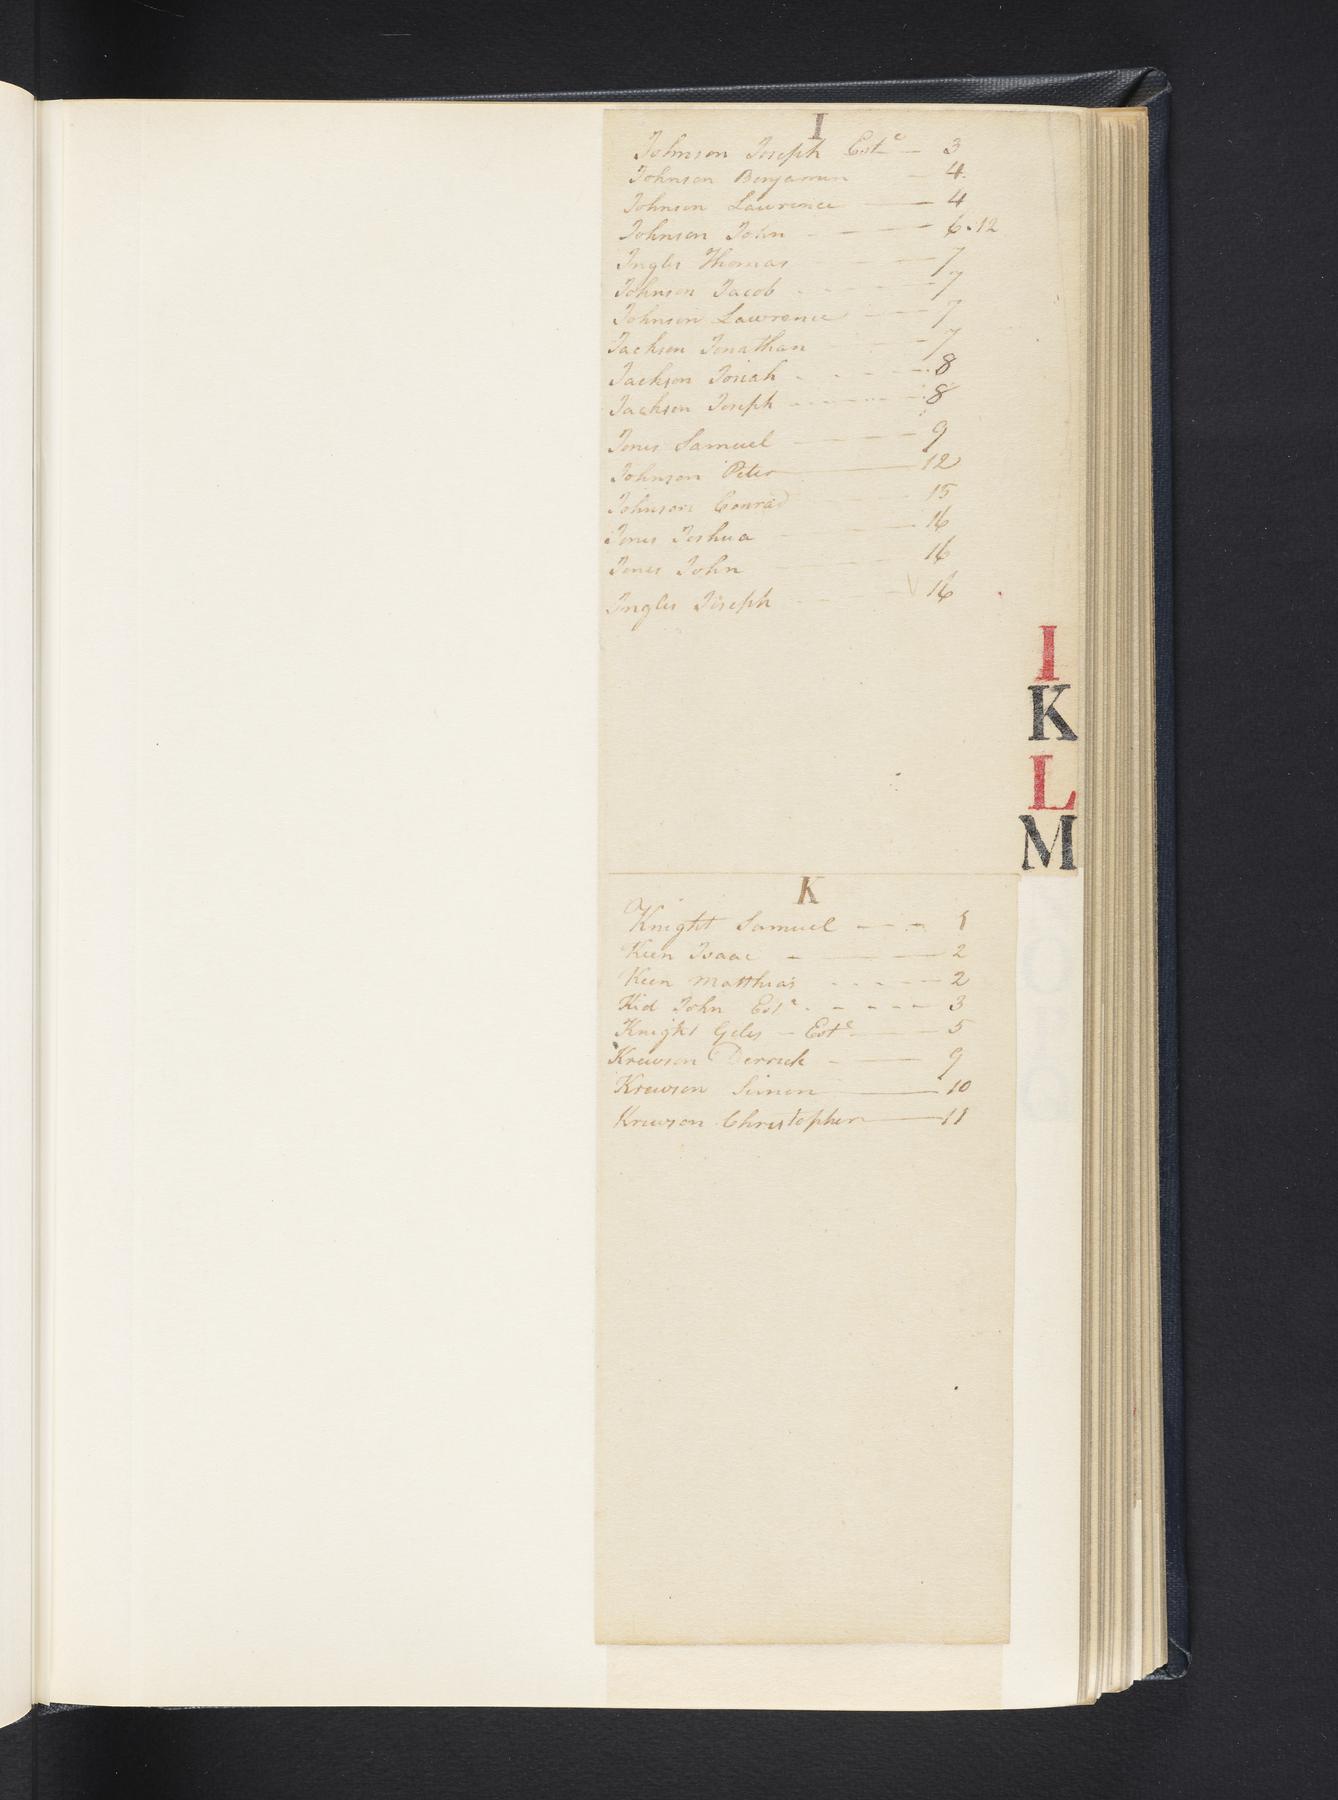 I
Johnson Joseph Est.e — 3
Johnson Benjamin - 4
Johnson Lawrence — — 4
Johnson John - - - - 6.12
Ingles Thomas - - - 7
Johnson Jacob - - - - 7
Johnson Lawrence - - 7
Jackson Jonathan - - - 7
Jackson Josiah - - - - 8
Jackson Joseph - - - - 8
Jones Samuel - - - - 9
Johnson Peter — 12
Johnson Conrad - - 15
Jones Joshua - - - 16
Jones John - - 16
Ingles Joseph - - - 16
I
K
L
M
K
Knight Samuel - - - 1
Keen Isaac - — — 2
Keen Matthias - - - - 2
Kid John Est.e - - - - 3
Knight Giles - Est.e — — 5
Krewson Derrick - — — 9
Krewson Simon — 10
Krewson Christopher — 11